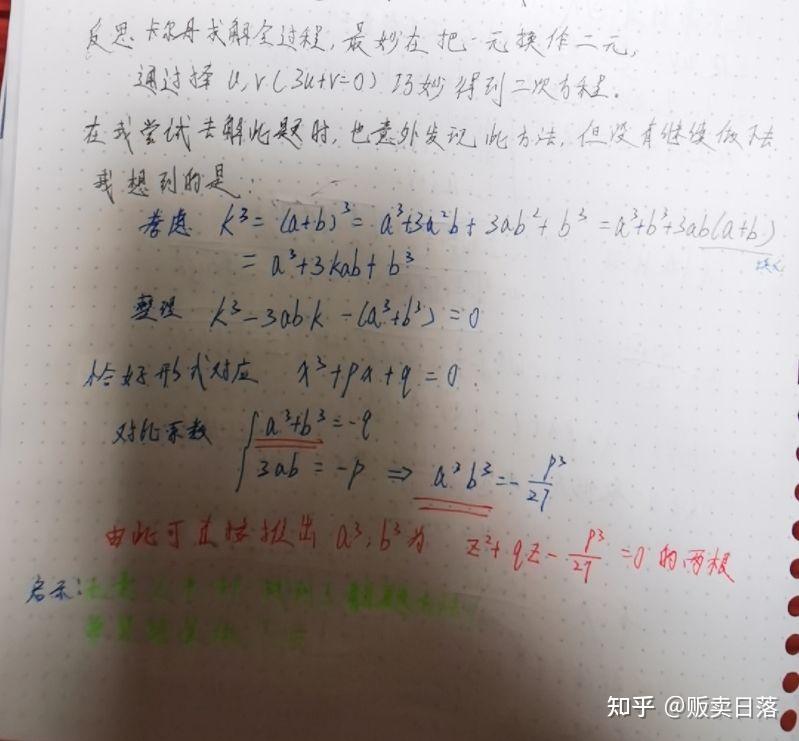 反思卡尔丹求解全过程,最妙在把一元换作二元,
通过择u,v(3u+v=0)巧妙得到二次方程。
在我尝试去解此题时,也意外发现此方法,但没有继续做下去
我想到的是:
考虑 k³=(a+b)³=a³+3a²b+3ab²+b³=a³+b³+3ab(a+b)
=a³+3kab+b³ 换元
整理 k³-3ab·k-(a³+b³)=0
恰好形式对应 x³+px+q=0.
对比系数 a³+b³=-q
3ab=-p ⇒ a³b³=-p³/27
由此可直接推出 a³,b³为 z²+qz-p³/27=0的两根
启示:
知乎 @贩卖日落